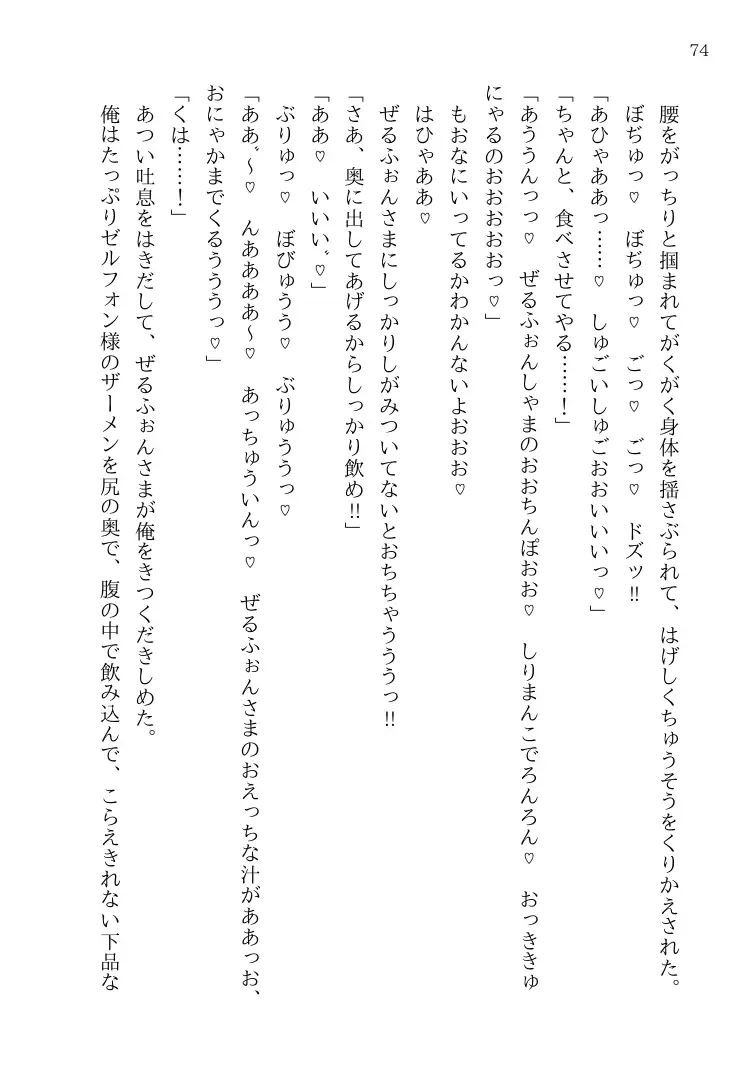 74
腰をがっちりと掴まれてがくがく身体を揺さぶられて、はげしくちゅうそうをくりかえされた。
ぼぢゅっ♡　ぼぢゅっ♡　ごっ♡　ごっ♡　ドズッ‼
「あひゃああっ……♡　しゅごいしゅごおおいいいっ♡」
「ちゃんと、食べさせてやる……！」
「あううんっっ♡　ぜるふぉんしゃまのおおちんぽおお♡　しりまんこでろんろん♡　おっききゅ
にゃるのおおおおおっ♡」
もおなにいってるかわかんないよおおお♡
はひゃああ♡
ぜるふぉんさまにしっかりしがみついてないとおちちゃうううっ‼
「さあ、奥に出してあげるからしっかり飲め‼」
「ああ♡　いいい゛♡」
ぶりゅっ♡　ぼびゅうう♡　ぶりゅううっ♡
「ああ゛～♡　んああああ～♡　あっちゅういんっ♡　ぜるふぉんさまのおえっちな汁がああっお、
おにゃかまでくるうううっ♡」
「くは……！」
あつい吐息をはきだして、ぜるふぉんさまが俺をきつくだきしめた。
俺はたっぷりゼルフォン様のザーメンを尻の奥で、腹の中で飲み込んで、こらえきれない下品な